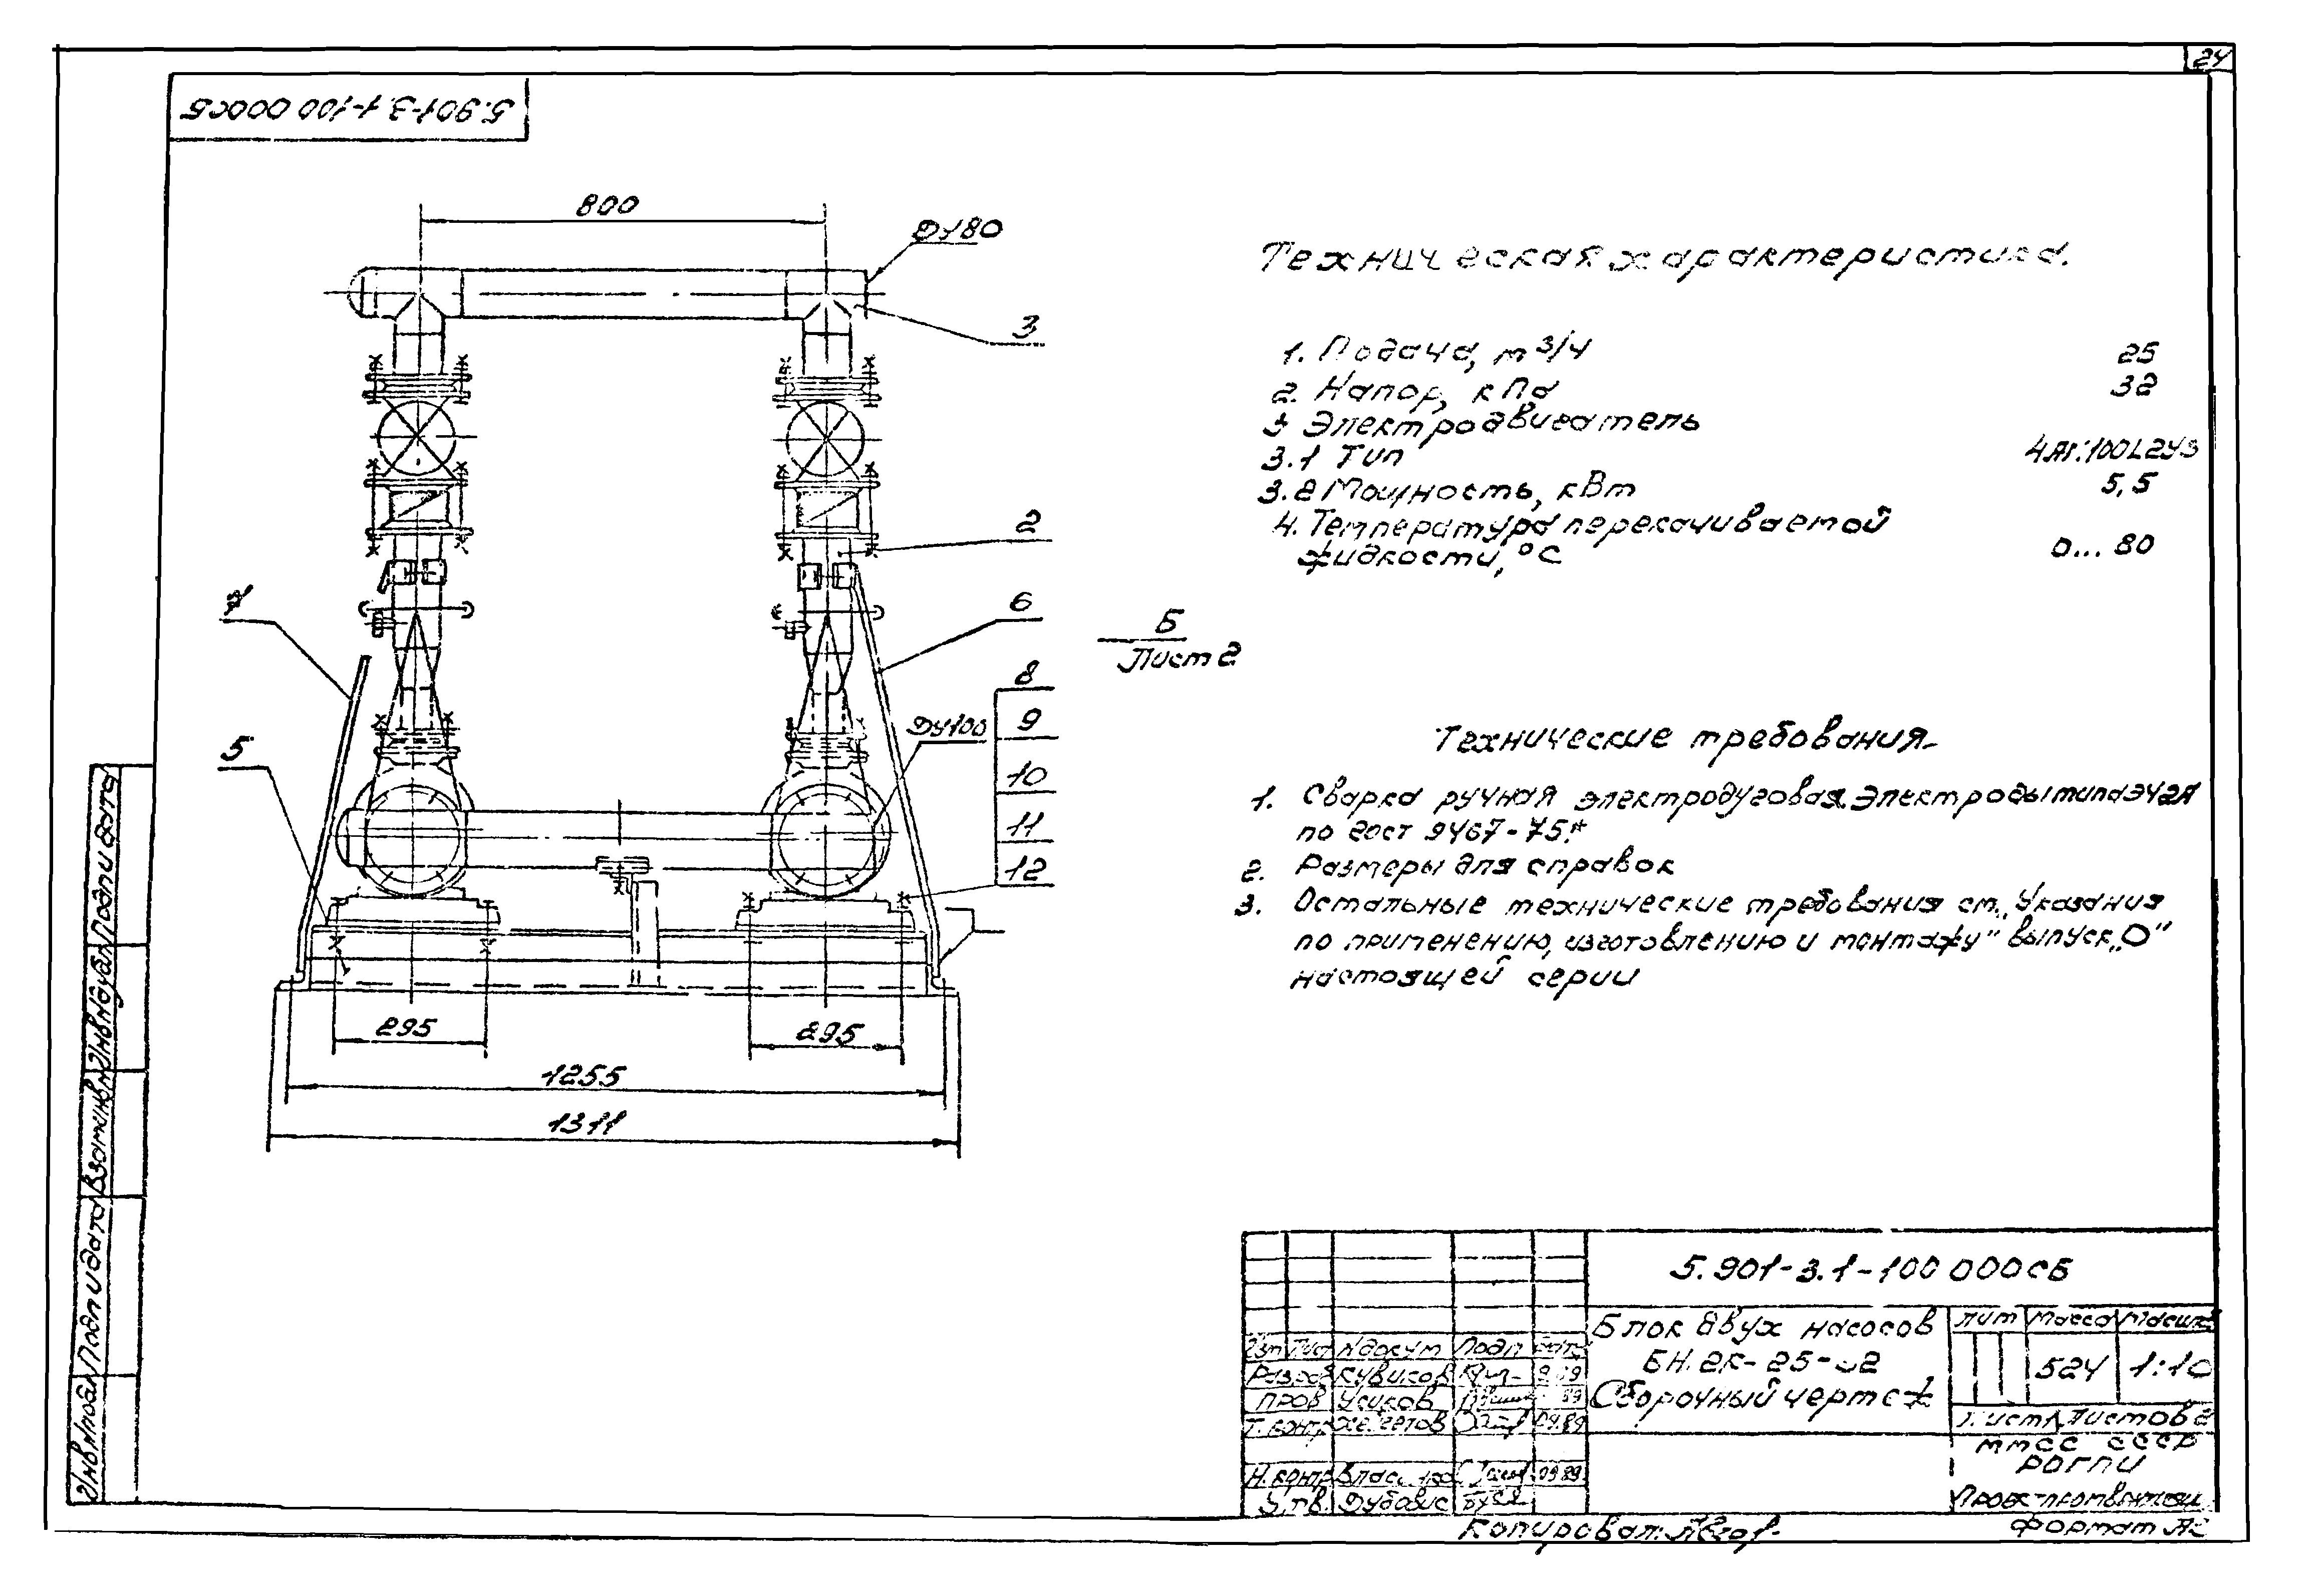 24
5.901-3.1-100 000СБ
800
Ду80
3
2
7
6
Б
Лист 2
8
5
Ду100
9
10
11
12
295
295
1255
1311
Техническая характеристика.
1. Подача, м³/ч 25
2. Напор, кПа 32
3 Электродвигатель
3.1 Тип 100L2У3
3.2 Мощность, кВт 5,5
4. Температура перекачиваемой
жидкости, °С 0...80
Технические требования
1. Сварка ручная электродуговая. Электроды типа Э42А
по гост 9467-75.*
2. Размеры для справок
3. Остальные технические требования см. „Указания
по применению, изготовлению и монтажу" выпуск „0"
настоящей серии
5.901-3.1-100 000СБ
Блок двух насосов
БН.2К-25-02
Сборочный чертеж
Лит Масса Масшт
524 1:10
Лист 1 Листов 2
ММСС СССР
Изм Лист N докум Подп Дата
Разраб Кувиков
Пров Усиков 89
Т. контр 09.89
Н. контр 09.89
Утв.
Копировал:
Формат А3
Инв N подл Подп и дата Взам инв N Инв N дубл Подп и дата